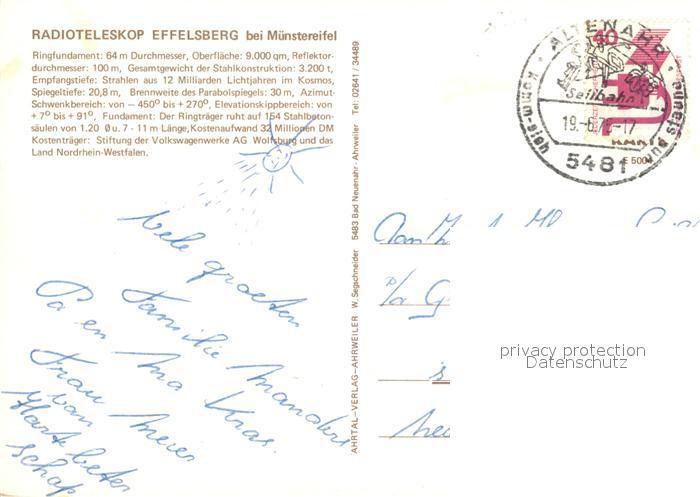 RADIOTELESKOP EFFELSBERG bei Münstereifel
Ringfundament: 64 m Durchmesser, Oberfläche: 9.000 qm, Reflektor-
durchmesser: 100 m, Gesamtgewicht der Stahlkonstruktion: 3.200 t,
Empfangstiefe: Strahlen aus 12 Milliarden Lichtjahren im Kosmos,
Spiegeltiefe: 20,8 m, Brennweite des Parabolspiegels: 30 m, Azimut-
Schwenkbereich: von — 450° bis + 270°, Elevationskippbereich: von
+ 7° bis + 91°, Fundament: Der Ringträger ruht auf 154 Stahlbeton-
säulen von 1.20 Ø u. 7 - 11 m Länge, Kostenaufwand 32 Millionen DM
Kostenträger: Stiftung der Volkswagenwerke AG Wolfsburg und das
Land Nordrhein-Westfalen.
vele groeten
Familie Manders
Pa en Ma Kras.
Frau Meier
van
Harte beter
schap
AHRTAL-VERLAG-AHRWEILER W. Segschneider 5483 Bad Neuenahr - Ahrweiler Tel: 02641 / 34489
40
ALTENAHR
Seilbahn
19.-6.76-17
5481
komm-sieh-und staune
E 5004
Aan
p/a G
privacy protection
Datenschutz